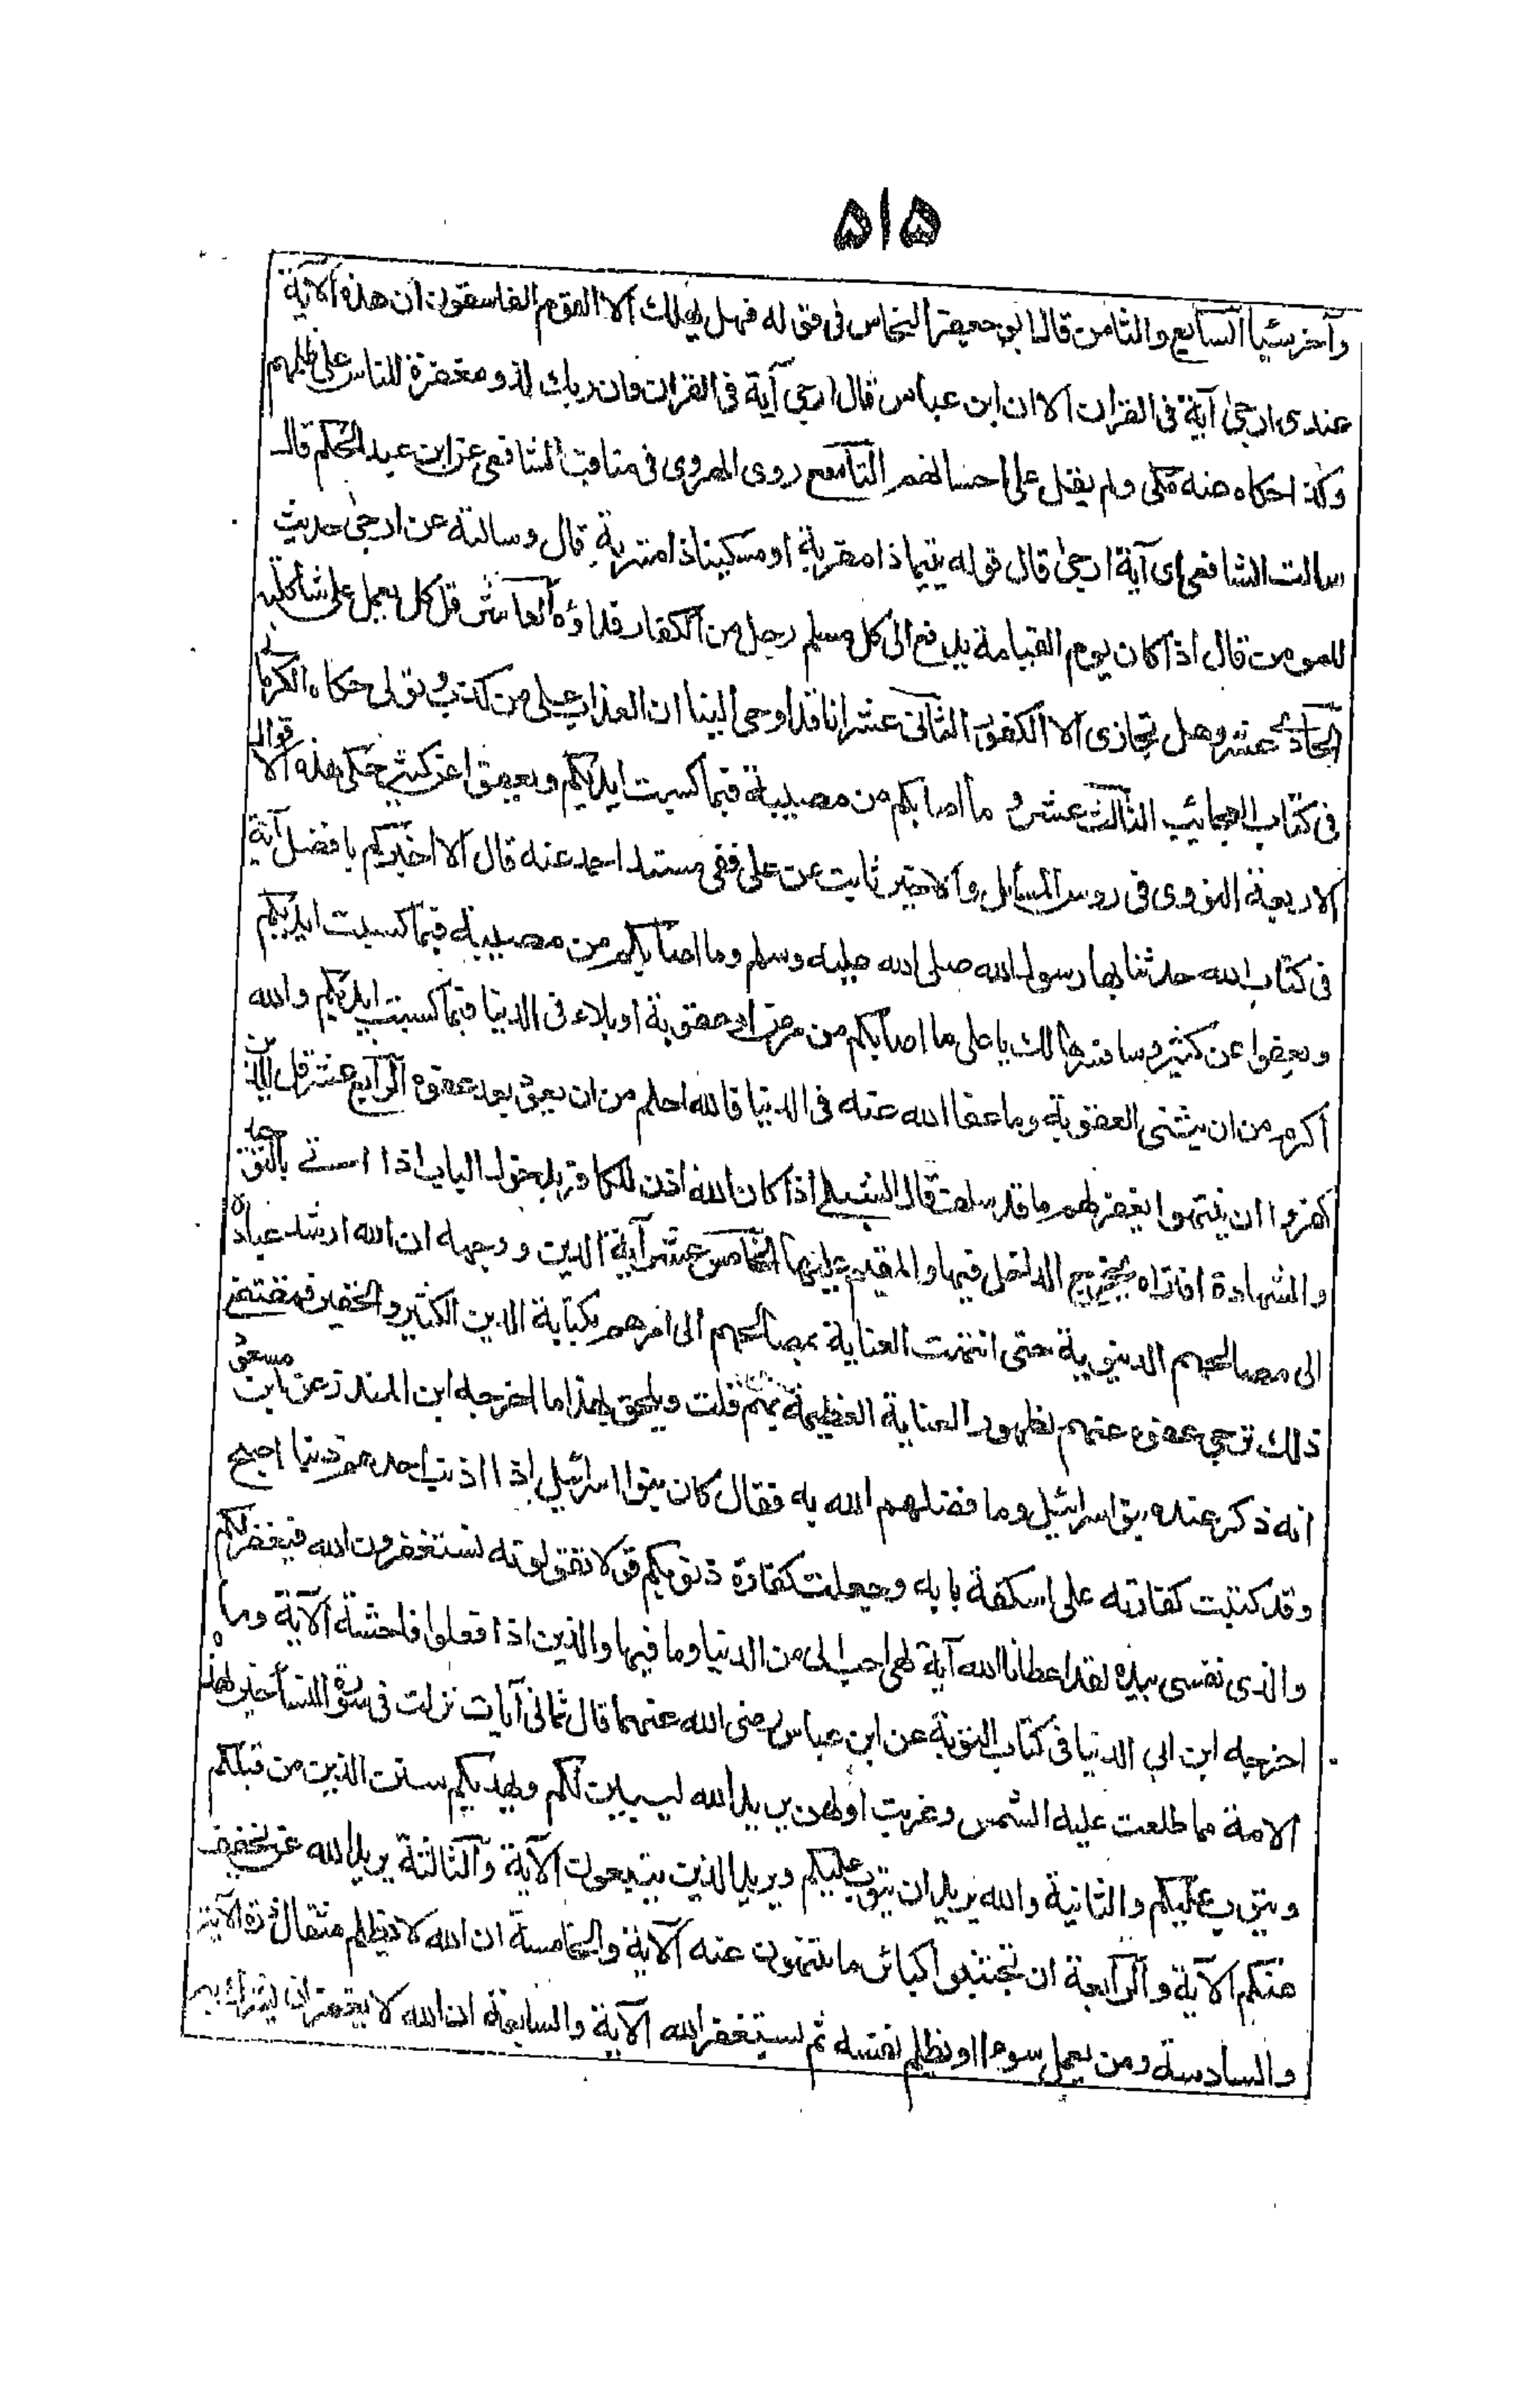 ۵۱۵
وآخر سيا السابع والثامن قال ابو جعفر النحاس في قوله فهل يهلك الا القوم الفاسقون ان هذه الآية
عندي ارجى آية في القران الا ان ابن عباس قال ارجى آية في القران وان ربك لذو مغفرة للناس على ظلمهم
وكذا حكاه عنه مكي ولم يقل على احسانهم التاسع روى الهروي في مناقب الشافعي عن ابن عبد الحكم قال
سالت الشافعي اى آية ارجى قال قوله يتيما ذا مقربة او مسكينا ذا متربة قال وسالته عن ارجى حديث
للمومن قال اذا كان يوم القيامة يدفع الى كل مسلم رجل من الكفار فداؤه العاشر قل كل يعمل على شاكلته
الحادي عشر وهل نجازى الا الكفور الثاني عشر انا قد اوحى الينا ان العذاب على من كذب وتولى حكاه الكرماني
في كتاب العجائب الثالث عشر وما اصابكم من مصيبة فبما كسبت ايديكم ويعفوا عن كثير حكى هذه الاقوال
الاربعة النووي في روس المسائل والاخير ثابت عن على ففي مسند احمد عنه قال الا اخبركم بافضل آية
في كتاب الله حدثنا بها رسول الله صلى الله عليه وسلم وما اصابكم من مصيبة فبما كسبت ايديكم
ويعفوا عن كثير وسافسرها لك يا على ما اصابكم من مرض او عقوبة او بلاء في الدنيا فبما كسبت ايديكم والله
اكرم من ان يثنى العقوبة وما عفا الله عنه في الدنيا فالله احلم من ان يعود بعد عفوه الرابع عشر قل للذين
كفروا ان ينتهوا يغفر لهم ما قد سلف قال الشبلي اذا كان الله اذن للكافر بدخول الباب اذا اتى بالتوحيد
والشهادة افتراه يخرج الداخل فيها والمقيم عليها الخامس عشر آية الدين ووجهه ان الله ارشد عباده
الى مصالحهم الدنيوية حتى انتهت العناية بمصالحهم الى امرهم بكتابة الدين الكثير والحقير فمقتضى
ذلك ترجى عفوه عنهم لظهور العناية العظيمة بهم قلت ويلحق بهذا ما اخرجه ابن المنذر عن ابن مسعود
انه ذكر عنده بنو اسرائيل وما فضلهم الله به فقال كان بنو اسرائيل اذا اذنب احدهم ذنبا اصبح
وقد كتبت كفارته على اسكفة بابه وجعلت كفارة ذنوبكم قولا تقولونه تستغفرون الله فيغفر لكم
والذي نفسي بيده لقد اعطانا الله آية لهى احب الى من الدنيا وما فيها والذين اذا فعلوا فاحشة الآية وما
اخرجه ابن ابي الدنيا في كتاب التوبة عن ابن عباس رضى الله عنهما قال ثماني آيات نزلت في سورة النساء خير لهذه
الامة مما طلعت عليه الشمس وغربت اولهن يريد الله ليبين لكم ويهديكم سنن الذين من قبلكم
ويتوب عليكم والثانية والله يريد ان يتوب عليكم ويريد الذين يتبعون الآية والثالثة يريد الله ان يخفف
عنكم الآية والرابعة ان تجتنبوا كبائر ما تنهون عنه الآية والخامسة ان الله لا يظلم مثقال ذرة الآية
والسادسة ومن يعمل سوءا او يظلم نفسه ثم يستغفر الله الآية والسابعة ان الله لا يغفر ان يشرك به